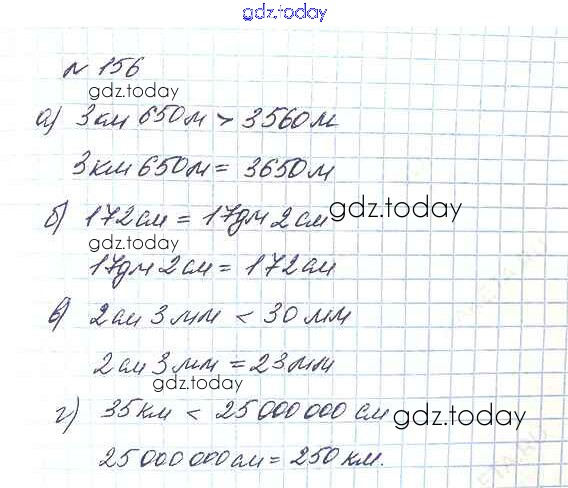 gdz.today
№ 156
gdz.today
а) 3км 650м > 3560м
3км 650м = 3650м
б) 172см = 17дм 2см
gdz.today
gdz.today
17дм 2см = 172см
в) 2см 3мм < 30мм
2см 3мм = 23мм
gdz.today
г) 35км < 25 000 000 см
gdz.today
25 000 000см = 250 км.